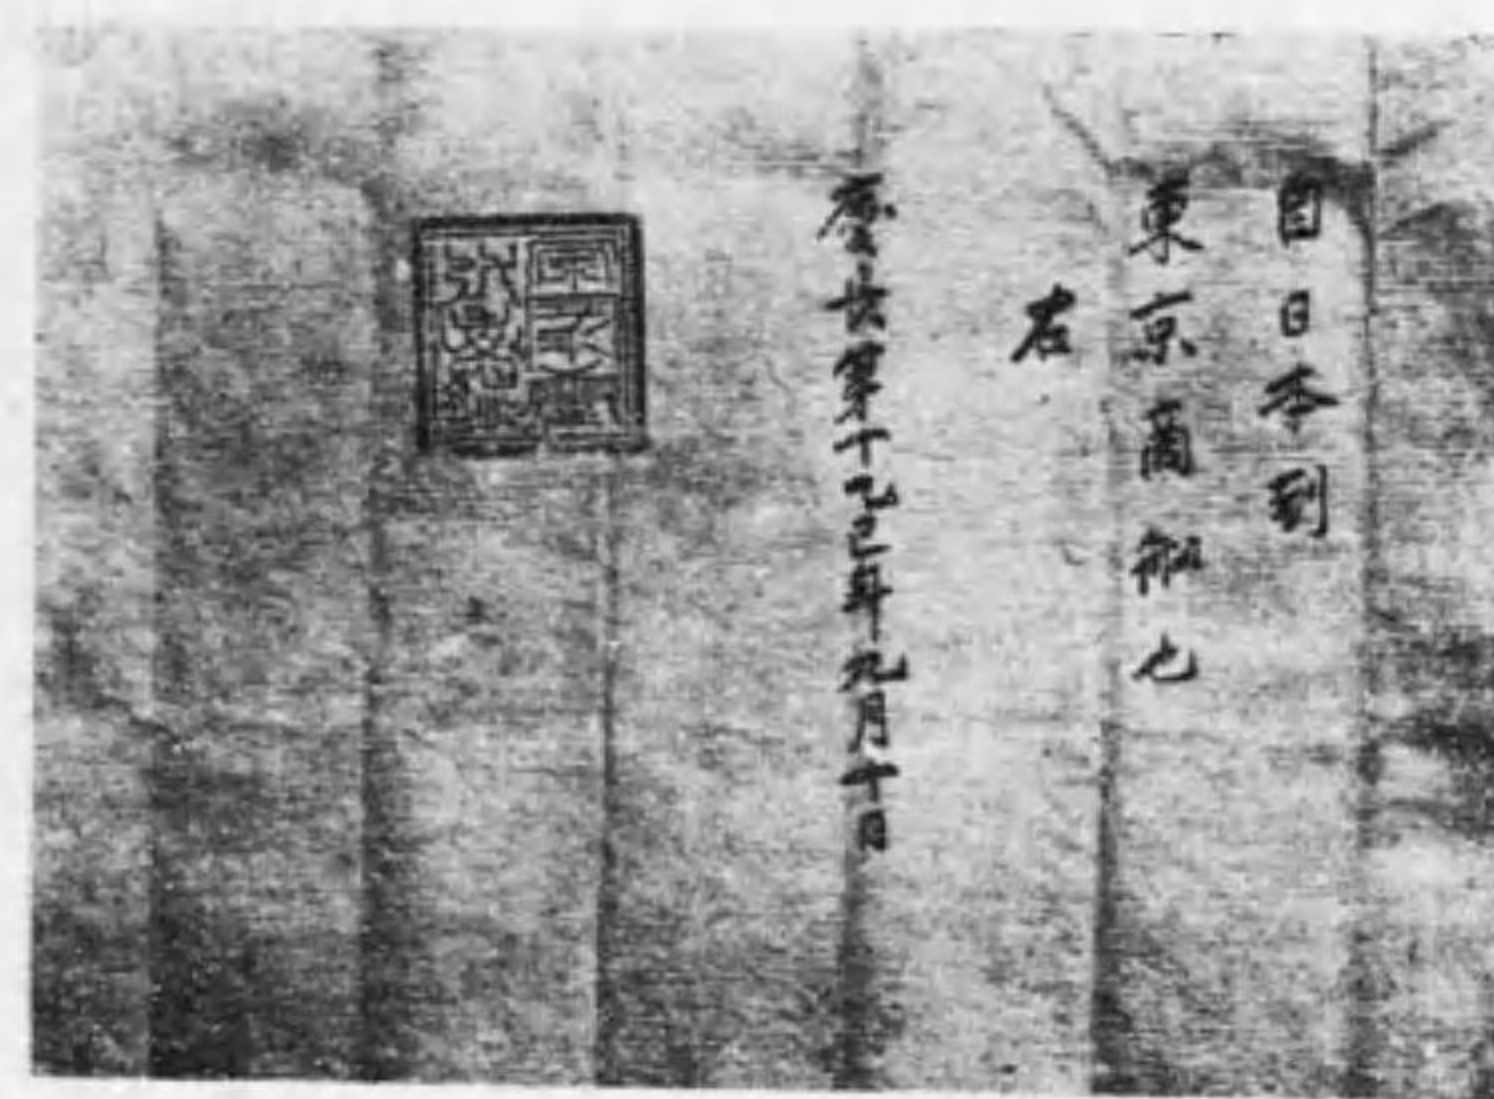 自日本到
東京商舩也
右
慶長第十乙巳年九月十日